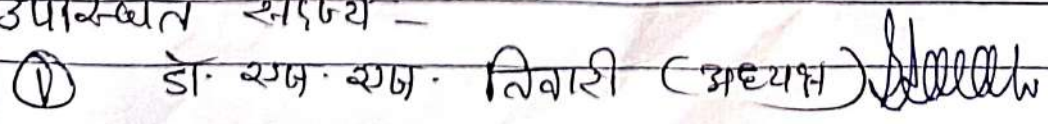 उपस्थित सदस्य –
① डॉ. एस. एस. तिवारी (अध्यक्ष)